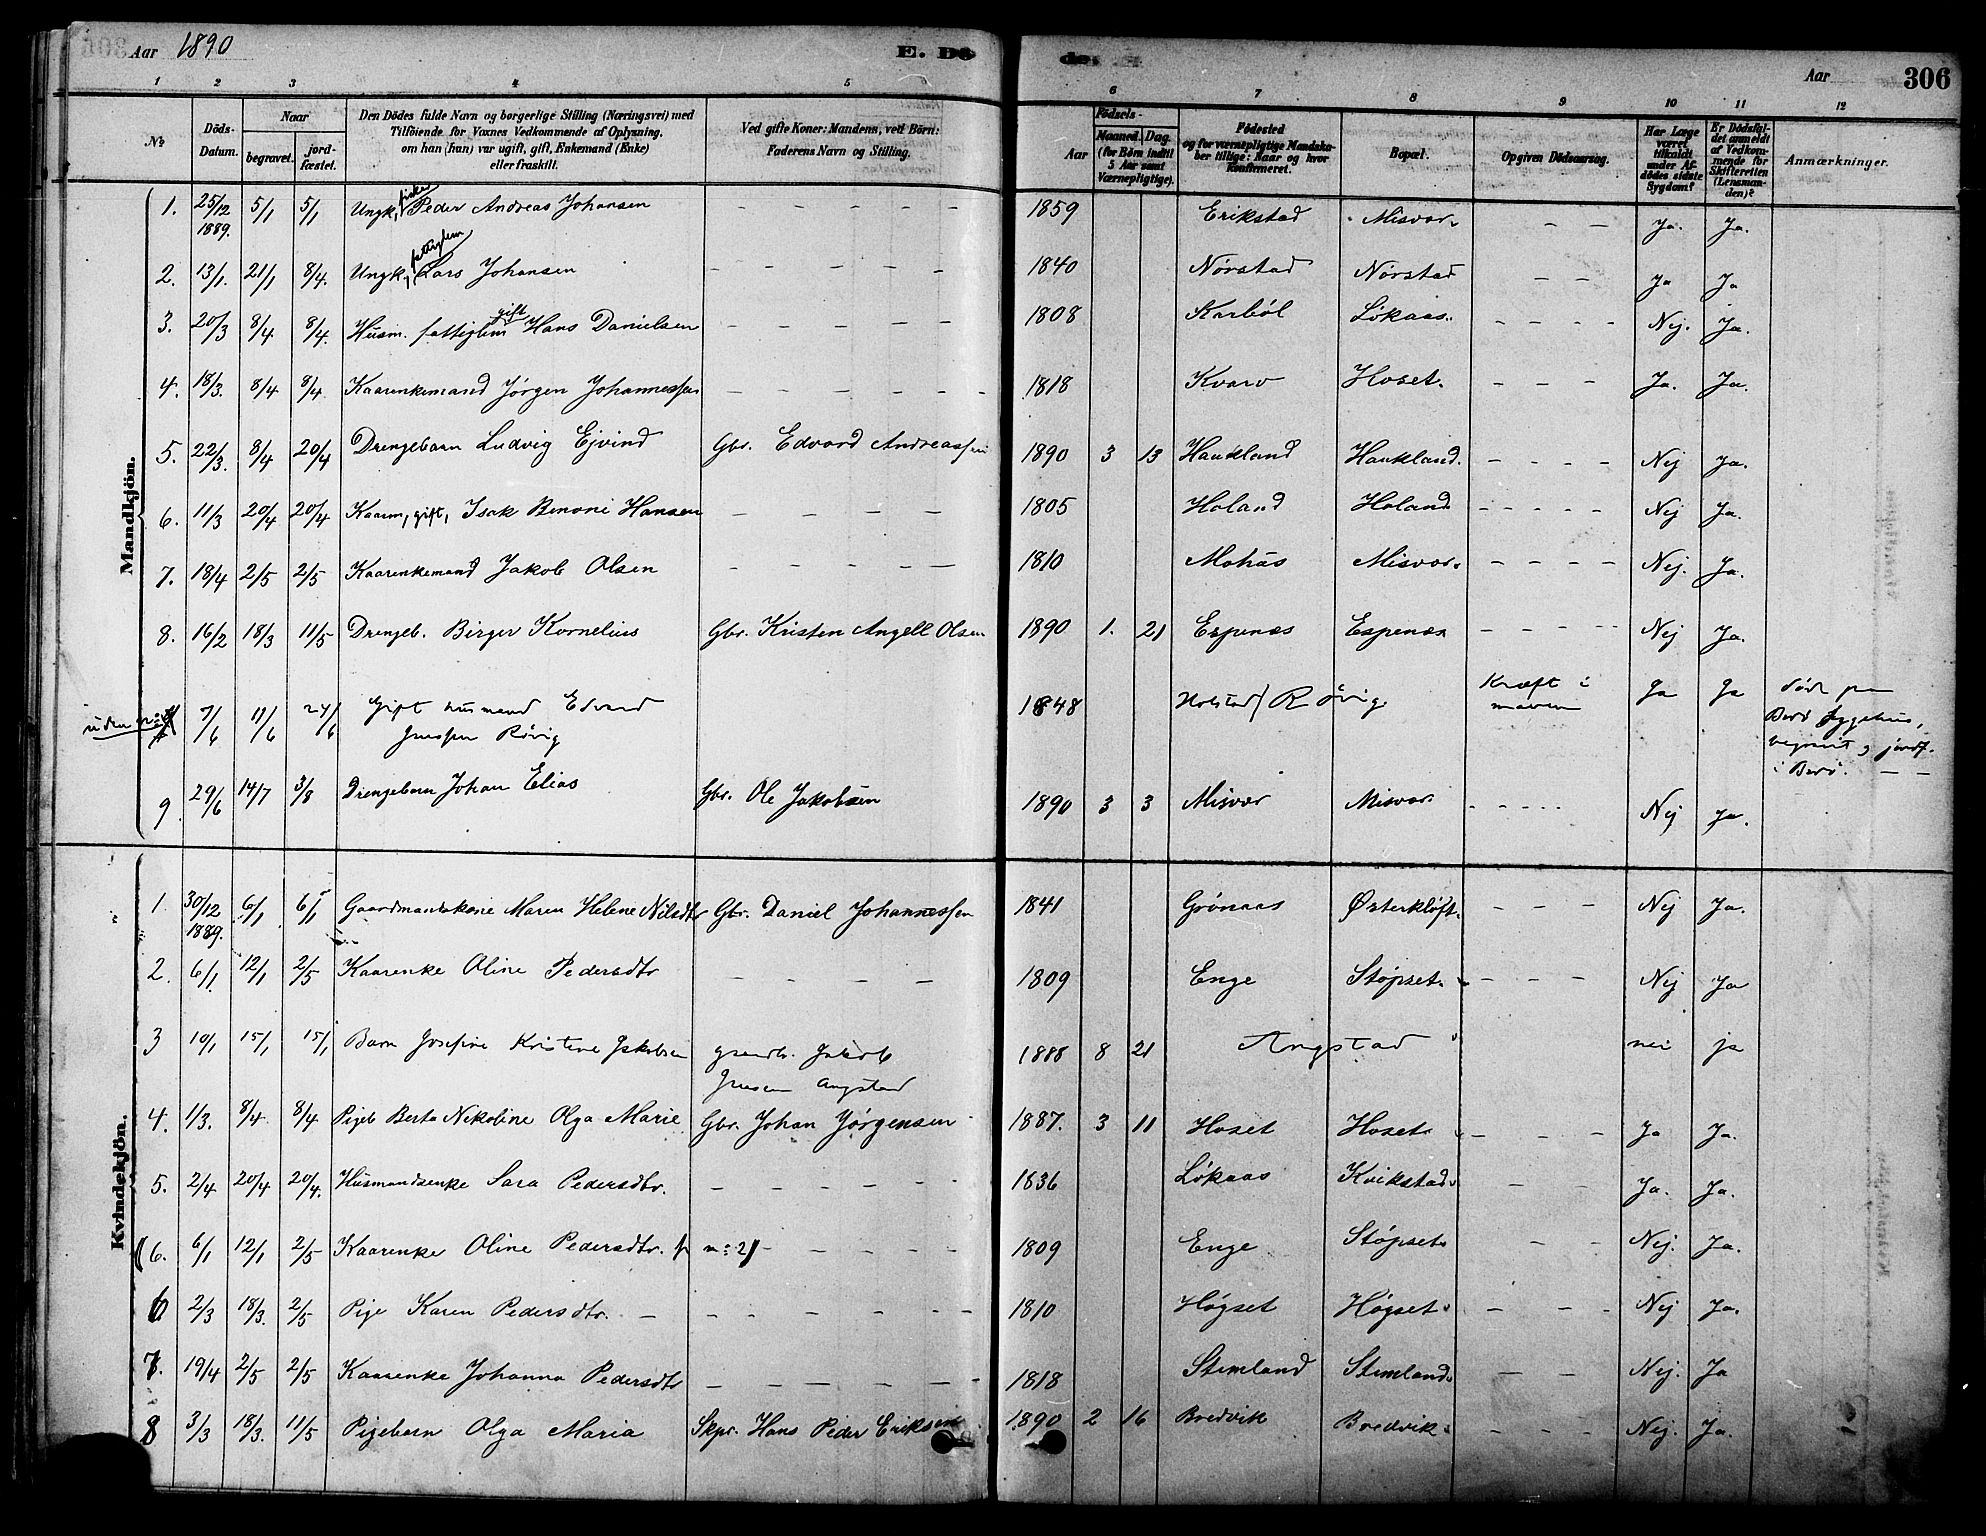 Aar 1890
E. Dö
de.
Aar
306
1 2 3 4 5 6 7 8 9 10 11 12
No
Döds-Datum.
Naar
begravet.
jord-fæstet.
Den Dödes fulde Navn og borgerlige Stilling (Næringsvei) med
Tilföiende for Voxnes Vedkommende af Oplysning,
om han (hun) var ugift, gift, Enkemand (Enke)
eller fraskilt.
Ved gifte Koner: Mandens, ved Börn:
Faderens Navn og Stilling.
Födsels-
Aar
Maaned Dag
(for Börn indtil
5 Aar samt
Værnepligtige).
Födested
og for værnepligtige Mandska-
ber tillige: Naar og hvor
Konfirmeret.
Bopæl.
Opgiven Dödsaarsag.
Har Læge
været
tilkaldt
under Af-
dödes sidste
Sygdom?
Er Dödsfal-
det anmeldt
af Vedkom-
mende for
Skifteretten
(Lensman-
den)?
Anmærkninger.
Mandkjön.
1. 25/12 1889. 5/1 5/1 Ungk, fisker Peder Andreas Johansen - - - - - 1859 Erikstad Misvær. - - - Ja. Ja.
2. 13/1. 21/1 8/4. Ungk, fattiglem Lars Johansen - - - - - 1840 Nørstad Nørstad Ja Ja
3. 20/3 8/4 8/4. Husm. fattiglem gift Hans Danielsen - - - - - 1808 Karbøl Løkaas. - - - - Nej. Ja.
4. 18/3. 8/4 8/4 Kaarenkemand Jørgen Johannessen - - - - - 1818 Kvarv Hoset. - - - Ja. Ja.
5. 22/3. 8/4 20/4 Drengebarn Ludvig Ejvind Gbr. Edvard Andreassen 1890 3 13 Haukland Haukland. - - - - Nej Ja.
6. 11/3 20/4 20/4 Kaarm, gift, Isak Benoni Hansen - - - - 1805 Holand Holand - - - - - Nej Ja.
7. 18/4 2/5 2/5 Kaarenkemand Jakob Olsen - - - - - 1810 Mohus Misvær. - - - - Nej. Ja.
8. 16/2 18/3 11/5 Drengeb. Birger Kornelius Gbr. Kristen Angell Olsen 1890 1. 21 Espenæs Espenæs - - - - Nej Ja.
7/6 11/6 24/6 Gift husmand Edvard 1848 Røvig Kræft i maven Ja Ja
9 29/6 14/7 3/8 Drengebarn Johan Elias Gbr. Ole Jakobsen 1890 3 3 Misvær Misvær - - - - Nej Ja.
Kvindekjön.
1. 30/12 1889. 6/1 6/1 Gaardmandskone Maren Helene Nilsdtr Gbr. Daniel Johannessen 1841 Grønaas Østerkløft. - - - Nej Ja.
2. 6/1. 12/1 2/5 Kaarenke Oline Pedersdtr - - - - 1809 Enge Støpset. - - - Nej Ja
3 10/1 15/1 15/1 Barn Josefine Kristine Jakobsen gaardbr. Jakob Jensen Angstad 1888 8 21 Angstad nei ja
4. 1/3. 8/4 8/4 Pigeb Berta Nikoline Olga Marie Gbr. Johan Jørgensen 1887. 3 11 Hoset Hoset. - - - Ja Ja.
5. 2/4 20/4 20/4. Husmandsenke Sara Pedersdtr. - - - - - 1836 Løkaas Kvikstad. - - Ja. Ja.
6. 6/1 12/1 2/5 Kaarenke Oline Pedersdtr. - - - - 1809 Enge Støpset. - - Nej. Ja.
6 2/3 18/3. 2/5 Pige Karen Pedersdtr. - - - - - 1810 Høgset Høgset. - - - Nej Ja.
7. 19/4 2/5 2/5 Kaarenke Johanna Pedersdtr - - - - - 1818 Stemland Stemland. - - Nej. Ja
8 3/3 18/3. 11/5 Pigebarn Olga Maria Skpr. Hans Peder Eriksen 1890 2 16 Bredvik Bredvik. - - - Nej. Ja.